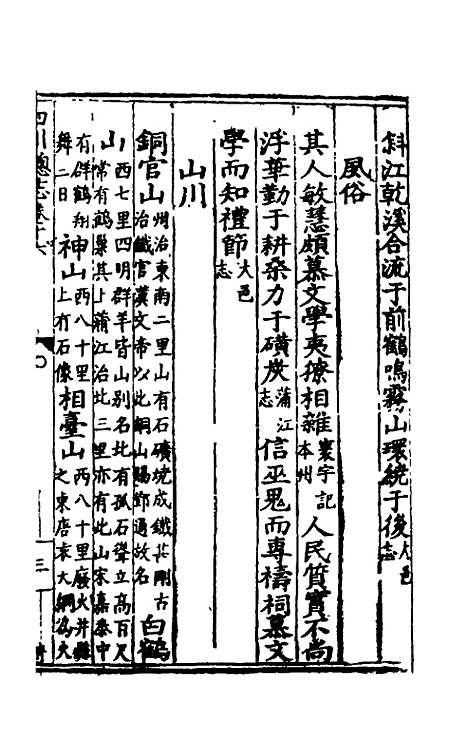 斜江乾溪合流于前鶴鳴霧山環繞于後大邑志
風俗
其人敏慧頗慕文學夷獠相雜寰宇記本州人民質實不尚
浮華勤于耕桒力于礦炭蒲江志信巫鬼而專禱祠慕文
學而知禮節大邑志
山川
銅官山州治東南二里山有石礦燒成鐵甚剛古治鐵官漢文帝以此銅山賜鄧通故名白鶴
山西七里四明群羊皆山别名北有孤石聳立高百尺常有鶴巢其上蒲江治北三里亦有此山宋嘉泰中
有群鶴翔舞二日神山西八十里上有石像相臺山西八十里廢火井縣之東唐袁天綱為火
四川總志卷十六
三